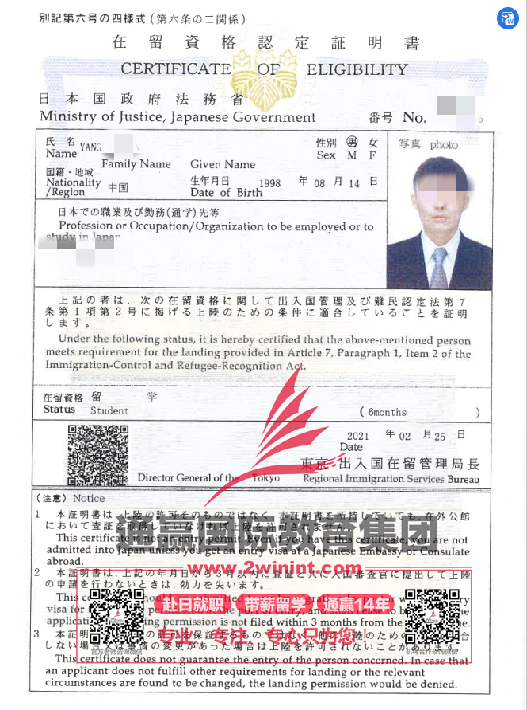 別記第六号の四様式(第六条の二関係)
在留資格認定証明書
CERTIFICATE OF ELIGIBILITY
日本国政府法務省
Ministry of Justice, Japanese Government
番号 No.
氏名
Name YANG
Family Name Given Name
性別 男 女
Sex M F
写真 photo
国籍・地域
Nationality
/Region
中国
生年月日 1998 年 08 月 14 日
Date of Birth
日本での職業及び勤務(通学)先等
Profession or Occupation/Organization to be employed or to
study in Japan
上記の者は、次の在留資格に関して出入国管理及び難民認定法第7
条第1項第2号に掲げる上陸のための条件に適合していることを証明
します。
Under the following status, it is hereby certified that the above-mentioned person
meets requirement for the landing provided in Article 7, Paragraph 1, Item 2 of the
Immigration-Control and Refugee-Recognition Act.
在留資格 留 学
Status Student
( 6months )
2021 年 02 月 25 日
Date
東京 出入国在留管理局長
Director General of the Tokyo Regional Immigration Services Bureau
(注意) Notice
1 本証明書は、上陸の許可そのものではなく、
通赢国际教育集团
において査証
This certificate is not
permit. Even if you have this certificate, you are not
admitted into Japan unless you get an entry visa at a Japanese Embassy or Consulate
abroad.
www.2winint.com
2 本証明書は、上記の年月日から
入国審査官に提出して上陸
の申請を行わないときは、効力を失います。
This
visa for
赴日就职 带薪留学 通赢14年
permission is not filed within 3 months from the
3
専心只为您
This certificate does not guarantee the entry of the person concerned. In case that
an applicant does not fulfill other requirements for landing or the relevant
circumstances are found to be changed, the landing permission would be denied.